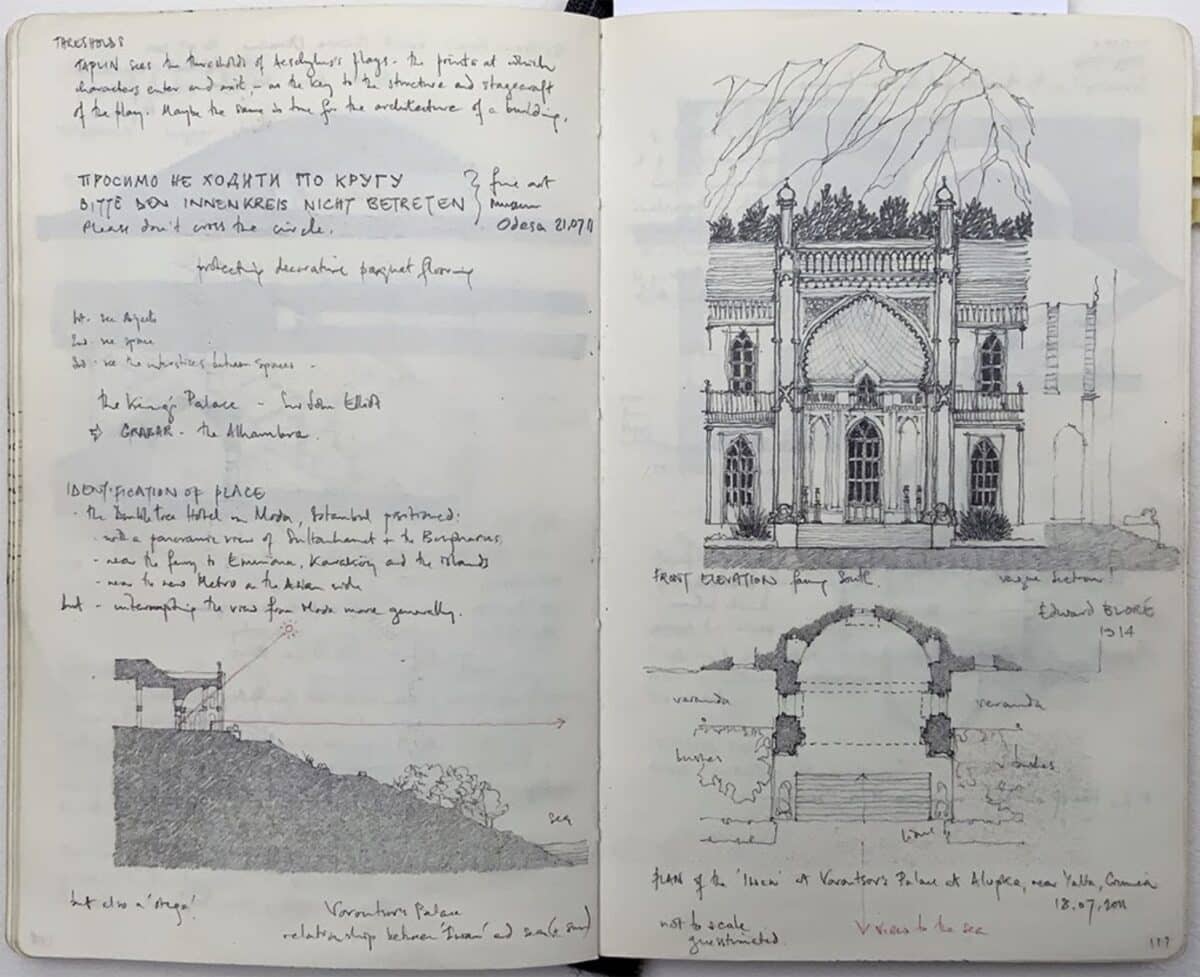 THRESHOLDS
TAPLIN sees the thresholds of Aeschylus's plays - the points at which
characters enter and exit - as the key to the structure and stagecraft
of the play. Maybe the same is true for the architecture of a building.
ПРОСИМО НЕ ХОДИТИ ПО КРУГУ
BITTE DEN INNENKREIS NICHT BETRETEN
Please don't cross the circle.
fine art
museum
Odesa 21.07.11
protecting decorative parquet flooring
1st - see objects
2nd - see space
3rd - see the interstices between spaces -
the King's Palace - Sir John Elliot
⇒ GRABAR - the Alhambra.
IDENTIFICATION OF PLACE
- the DoubleTree Hotel in Moda, Istanbul positioned:
- with a panoramic view of Sultanahmet + the Bosphorus,
- near the ferry to Eminönü, Karaköy and the islands
- near the new Metro on the Asian side
but - interrupting the view from Moda more generally.
sea
but also a 'stega'!
Vorontsov's Palace
relationship between 'Iwan' and sea (+ sun)
FRONT ELEVATION facing South.
vague section!
Edward BLORE
veranda
veranda
bushes
bushes
lions
PLAN of the 'Iwan' at Vorontsov's Palace at Alupka, near Yalta, Crimea
18.07.2011
not to scale
guesstimated.
view to the sea
117